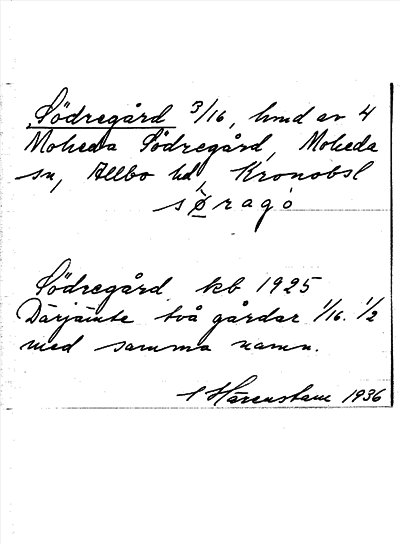 Södregård 3/16, hmd av 4
Moheda Södregård, Moheda
sn, Allbo hd, Kronobsl
sø̀ragọ
Södregård kb 1925
Därjämte två gårdar 1/16. 1/2
med samma namn.
C Härenstam 1936